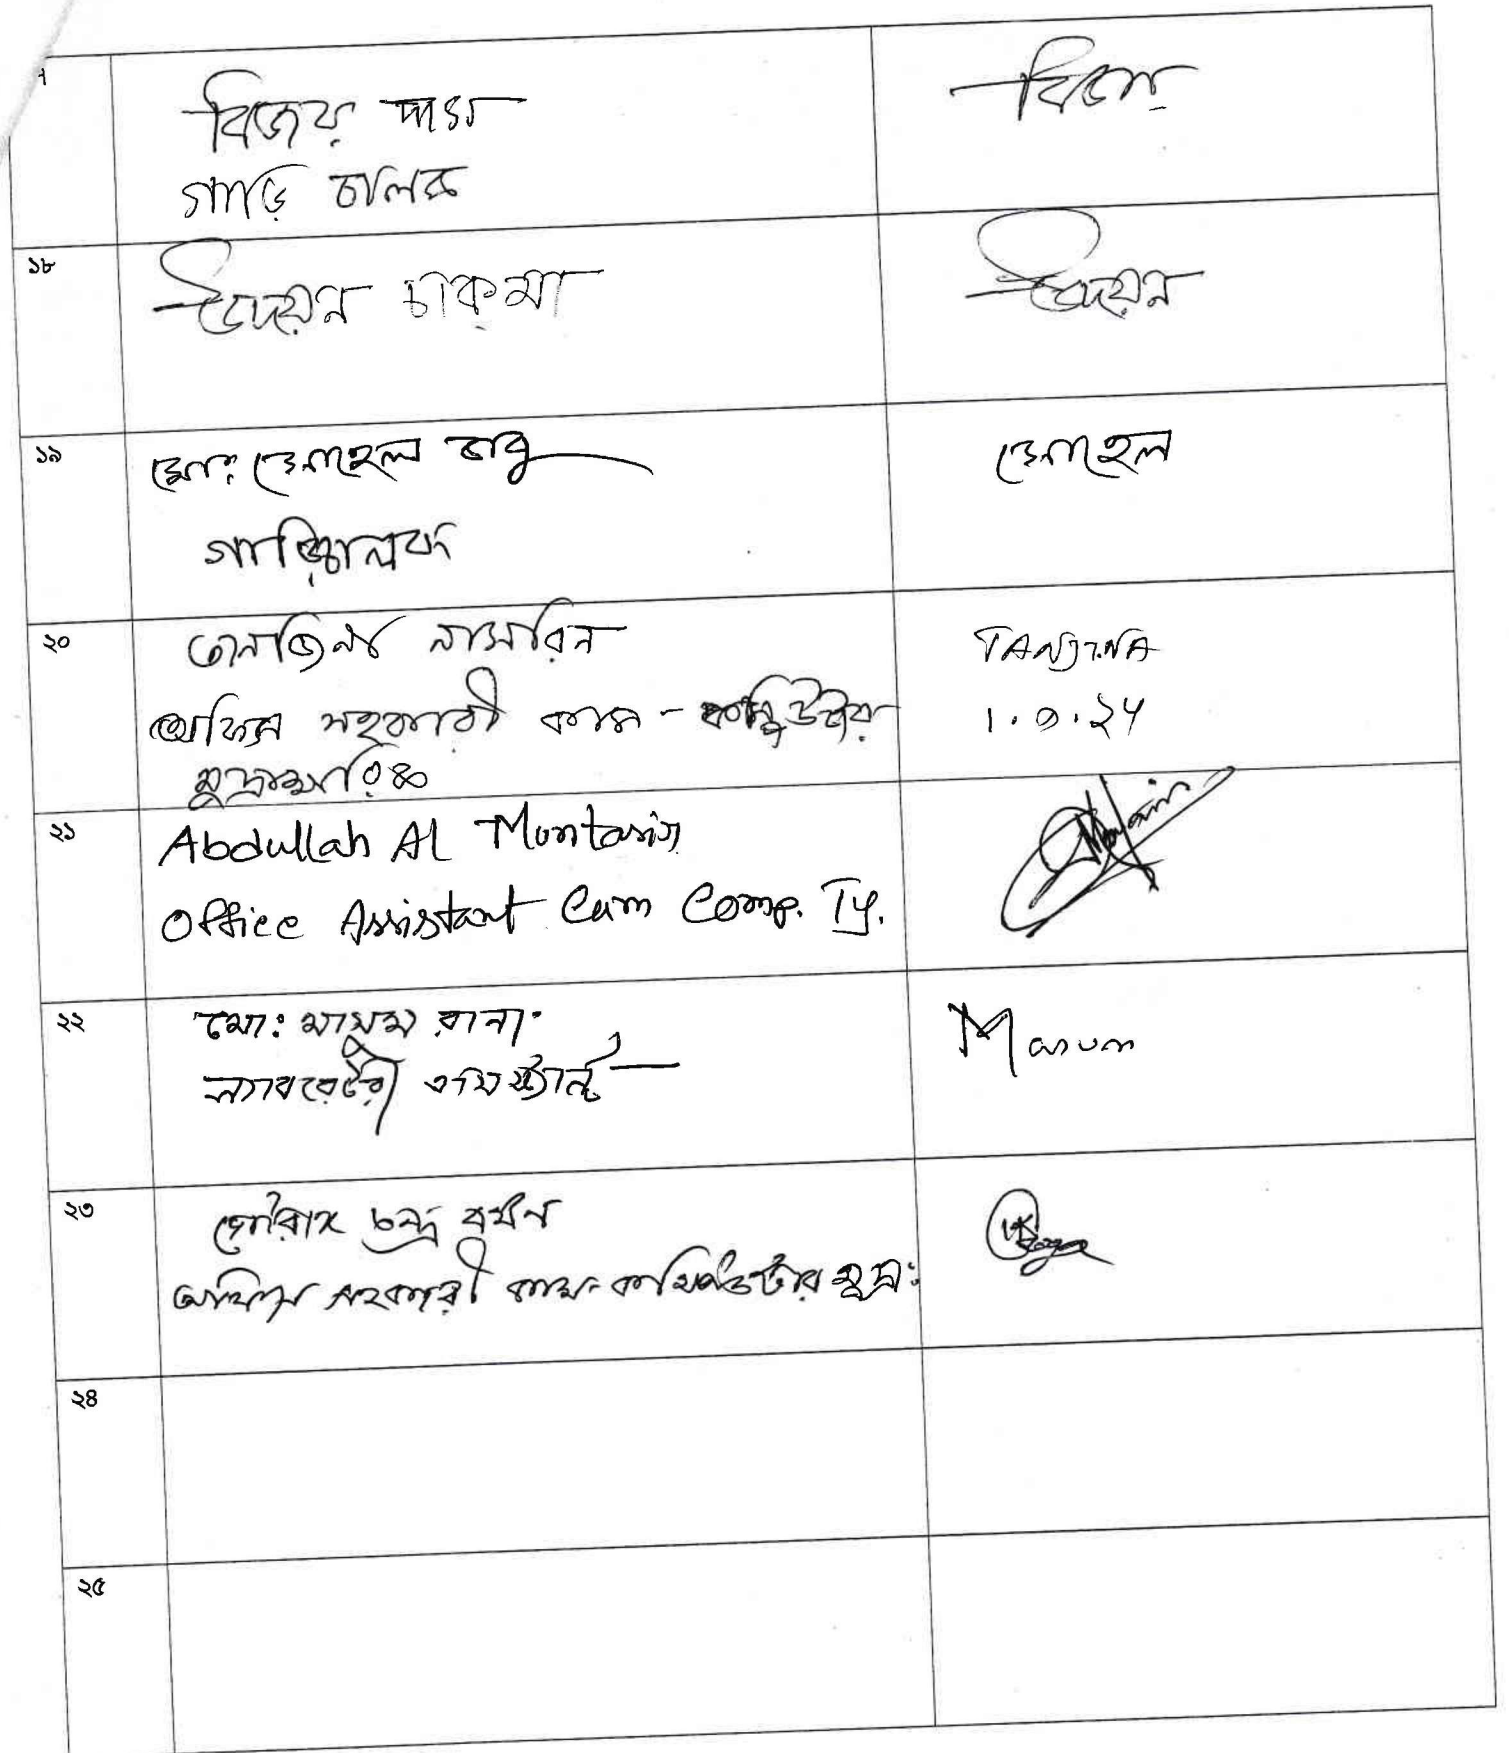 ৭
বিজয় দাস
গাড়ি চালক
বিজয়
১৮
উদয়ন চাক্‌মা
উদয়ন
১৯
মোঃ সোহেল বাবু
গাড়িচালক
সোহেল
২০
তানজিনা নাসরিন
অফিস সহকারী কাম-কম্পিউটার
মুদ্রাক্ষরিক
TANJINA
১.৩.২৪
২১
Abdullah Al Muntasir
Office Assistant Cum Comp. Ty.
২২
মো: মাসুম রানা
ল্যাবরেটরী এসিস্ট্যান্ট
Masum
২৩
গৌরাঙ্গ চন্দ্র বর্মন
অফিস সহকারী কাম-কম্পিউটার মুদ্রা:
২৪
২৫